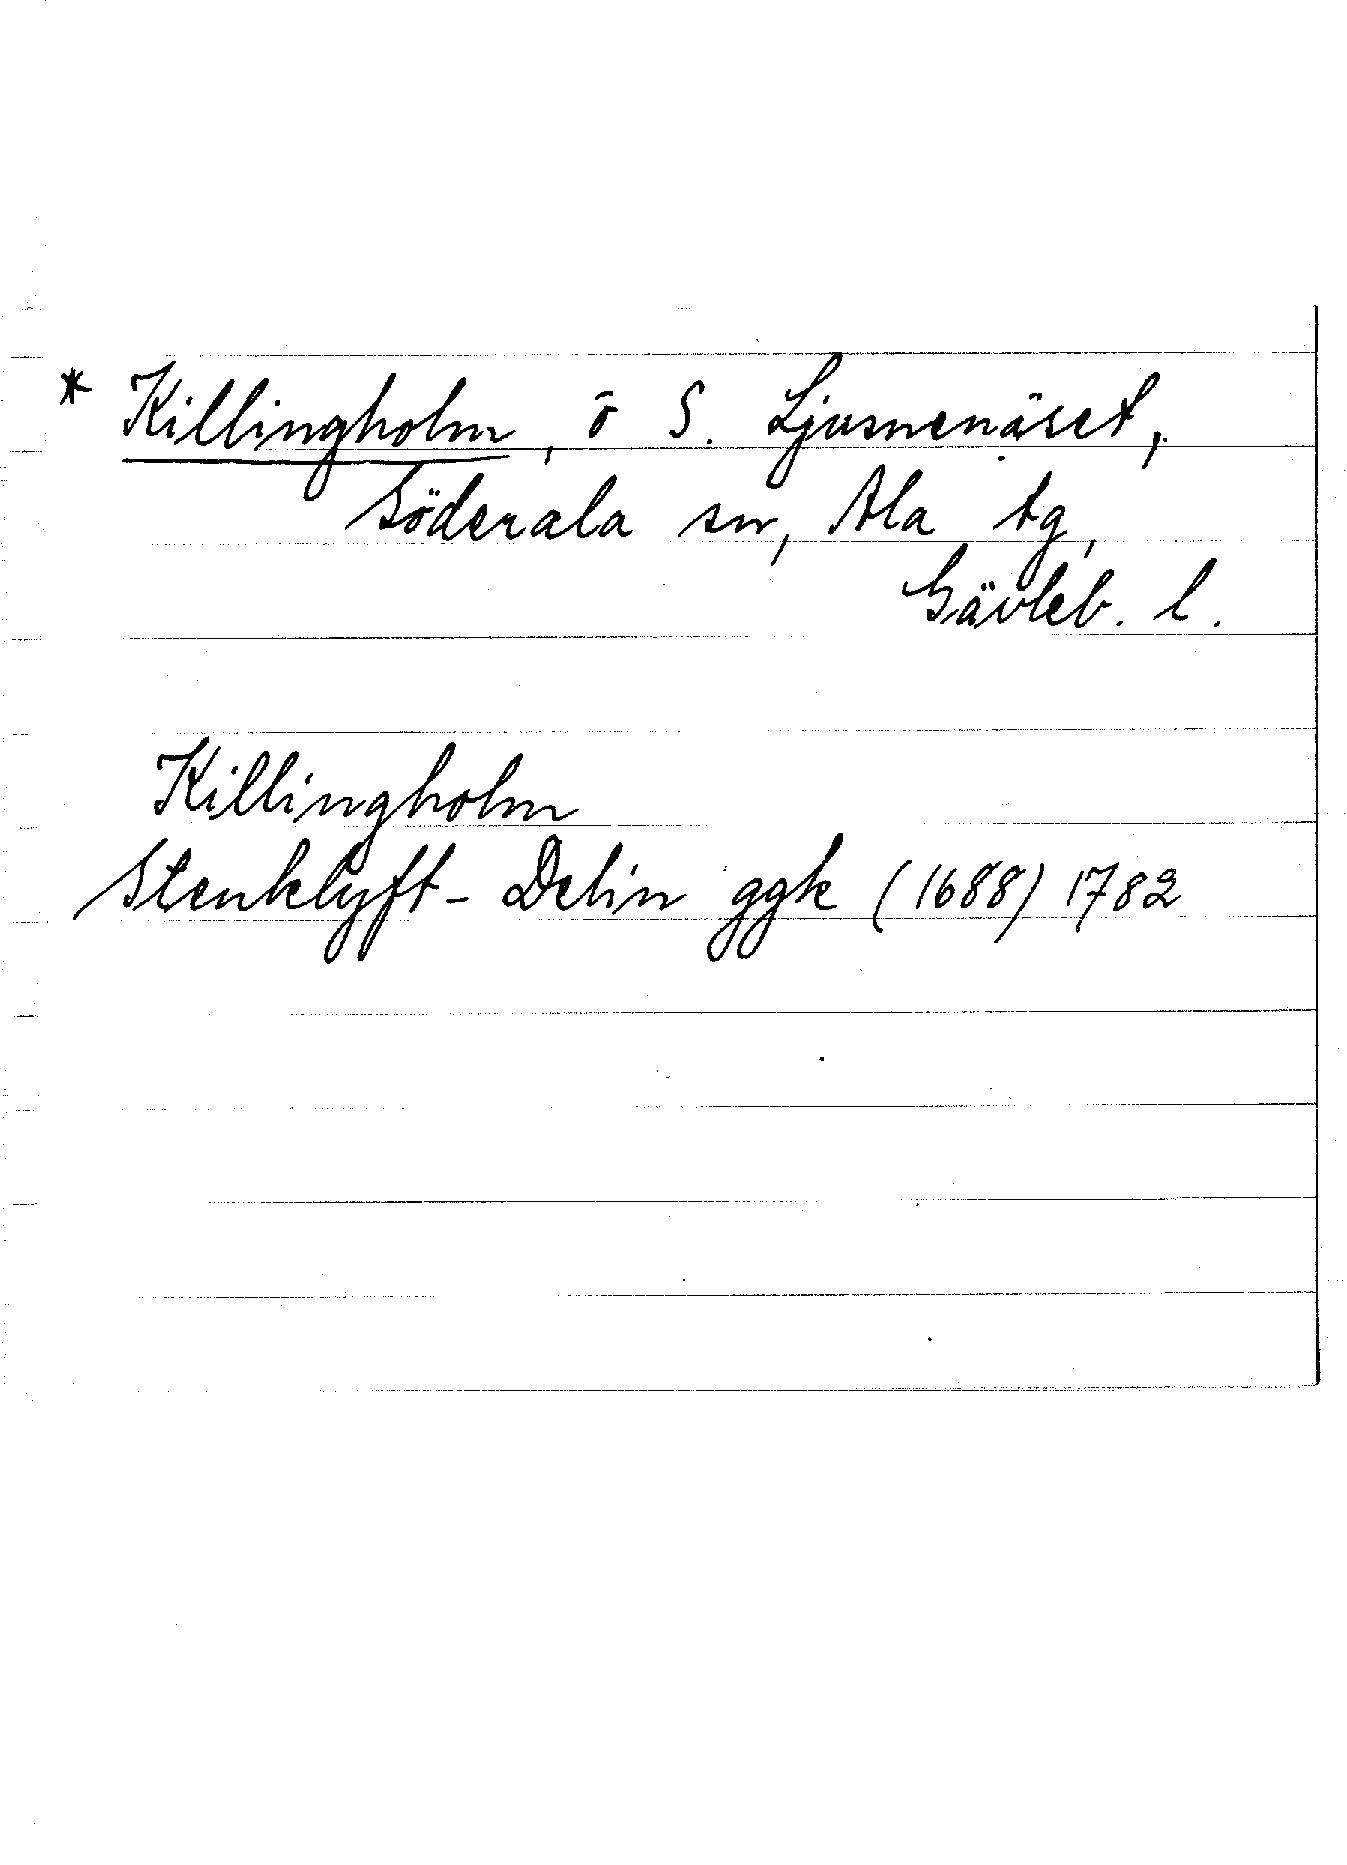 * Killingholm, ö S. Ljusnenäset,
Söderala sn, Ala tg,
Gävleb. l.
Killingholm
Stenklyft-Delin ggk (1688) 1782